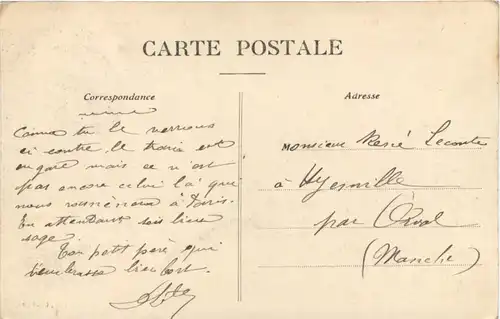 CARTE POSTALE
Correspondance
Adresse
Comme tu le verrais
ci contre, le train est
en gare mais ce n'est
pas encore celui là que
nous ramènera à Paris.
En attendant sois bien
sage.
Ton petit père qui
t'embrasse bien fort.
Monsieur René Lecomte
à Hyenville
par Orval
(Manche)